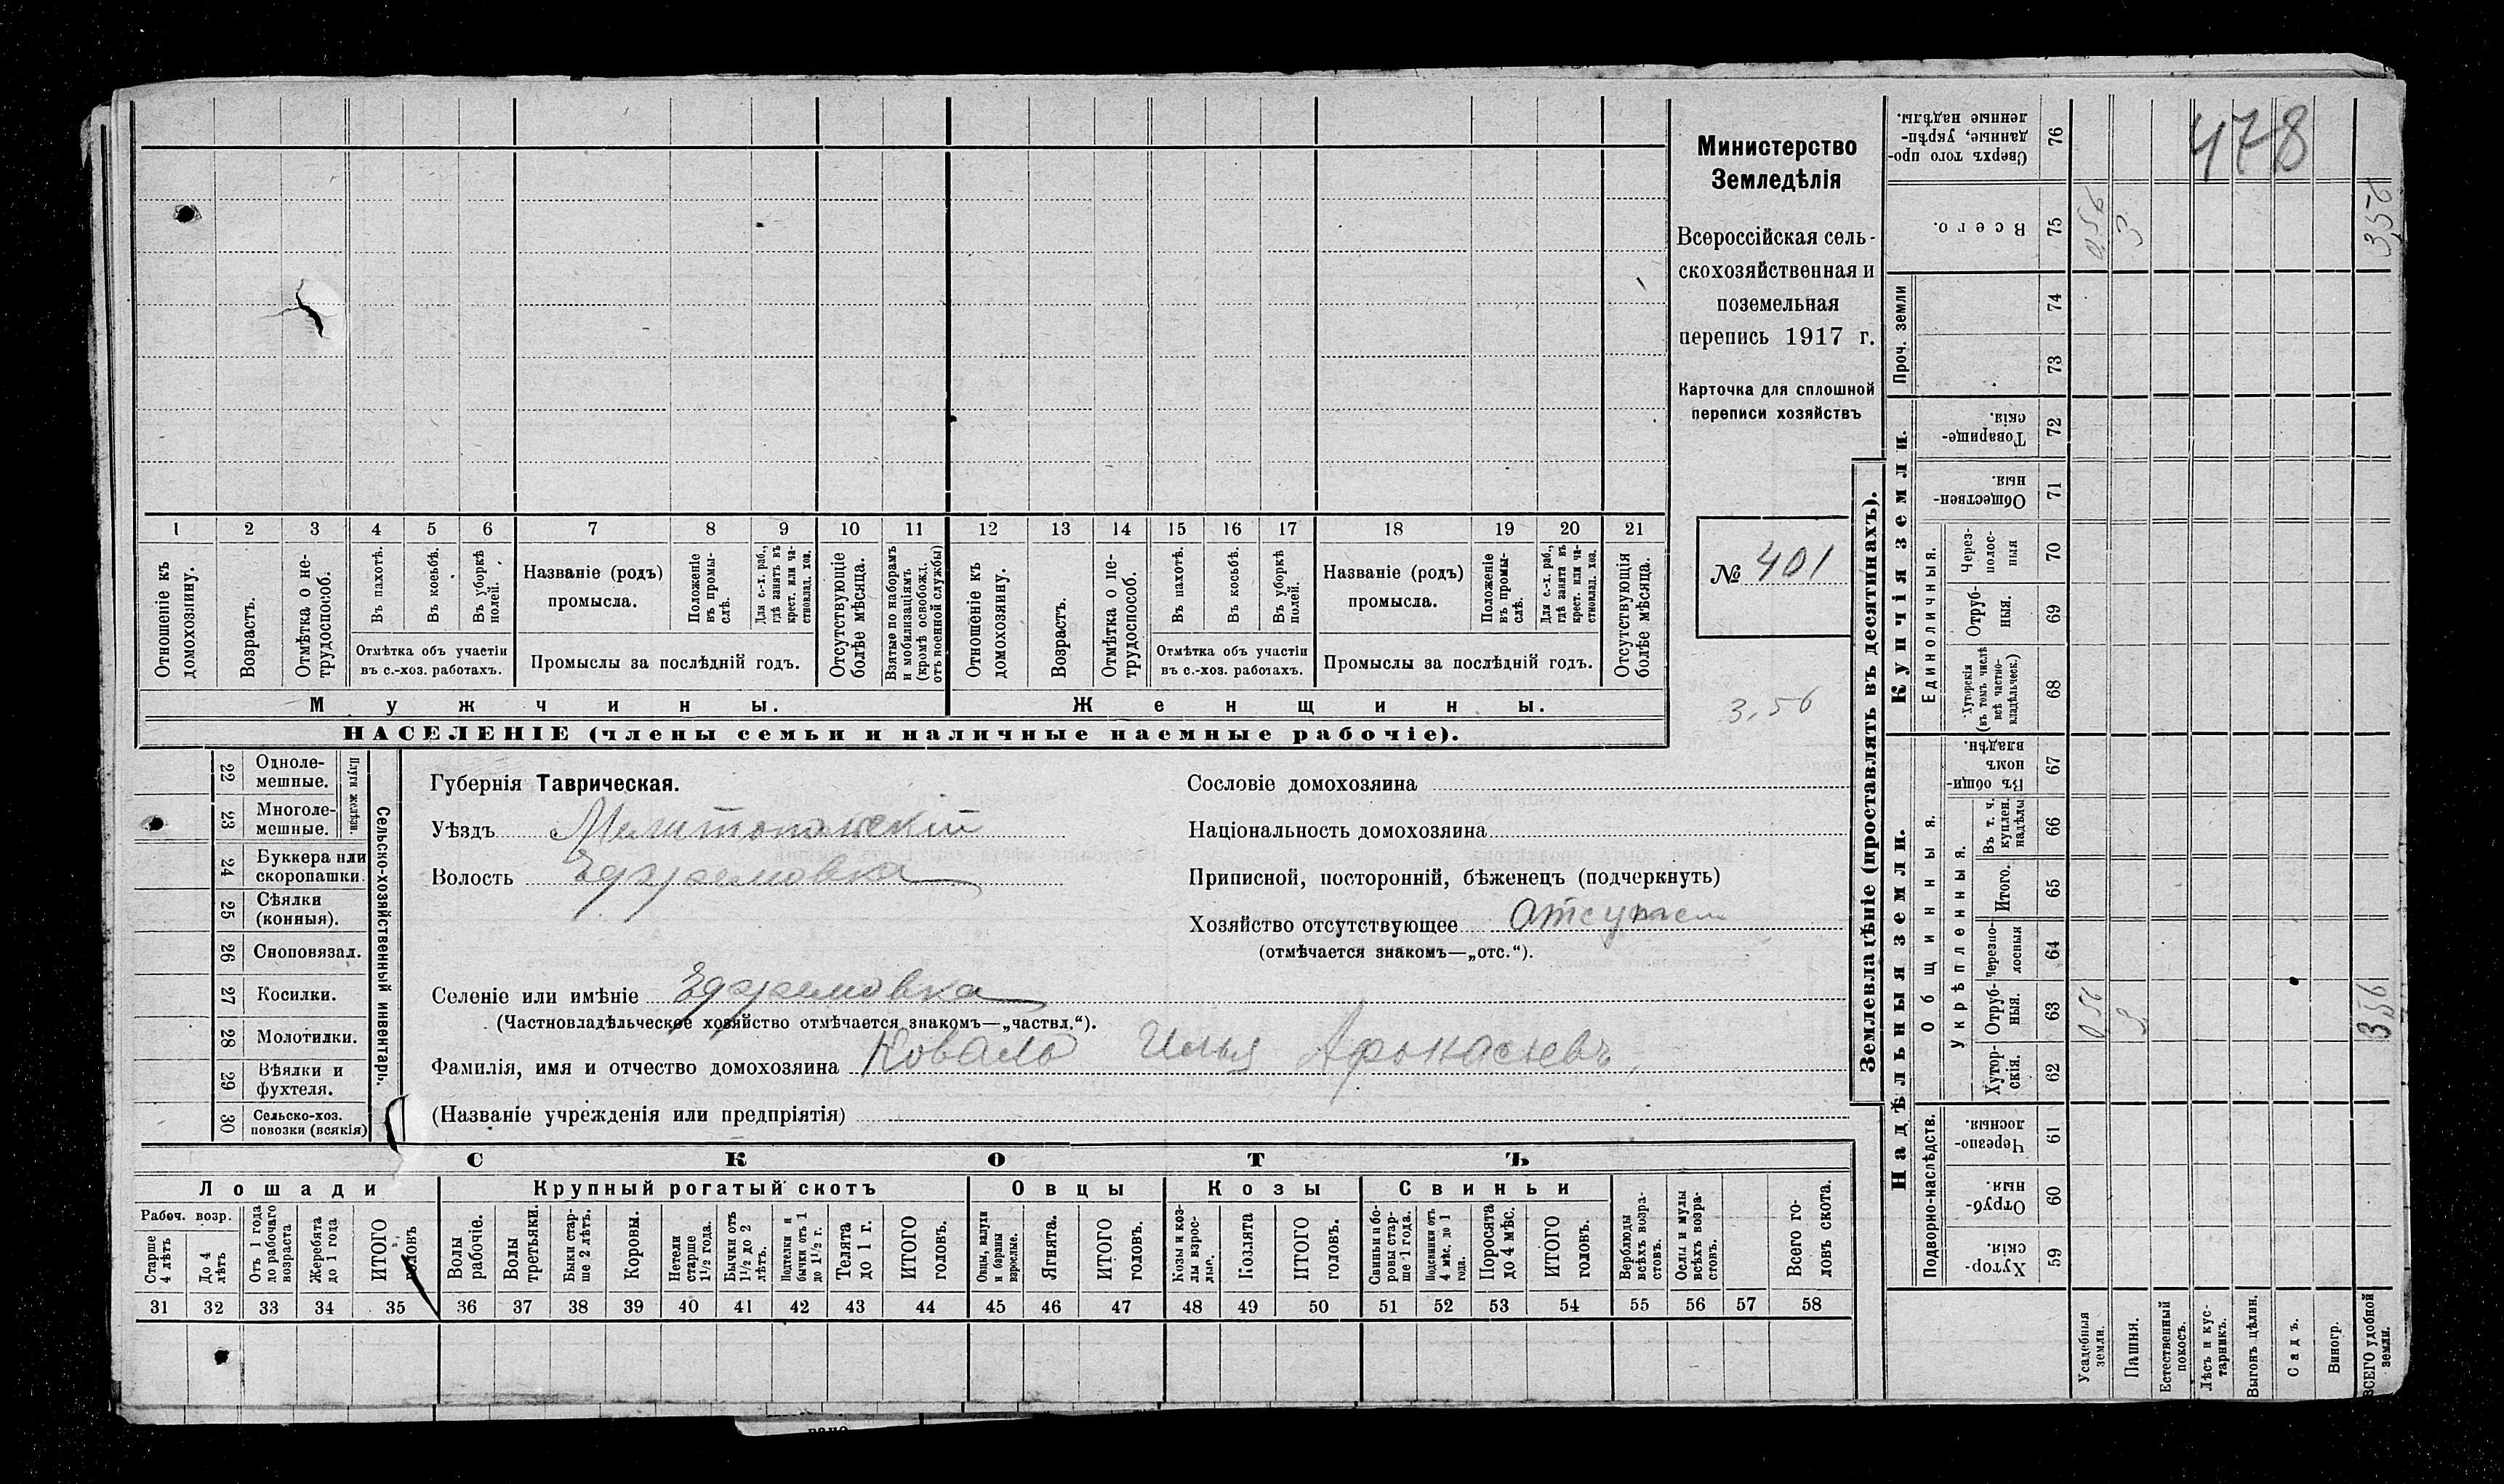 1 2 3 4 5 6 7 8 9 10 11 12 13 14 15 16 17 18 19 20 21
Отношеніе къ домохозяину.
Возрастъ.
Отмѣтка о не-
трудоспособ.
Въ пахотѣ.
Въ косьбѣ.
Въ уборкѣ полей.
Отмѣтка объ участіи
въ с.-хоз. работахъ.
Названіе (родъ)
промысла.
Положеніе
въ промы-
слѣ.
Для с.-х. раб.,
гдѣ занятъ въ
крест. или ча-
стновлад. хоз.
Промыслы за послѣдній годъ.
Отсутствующіе
болѣе мѣсяца.
Взятые по наборамъ
и мобилизаціямъ
(кромѣ освобожд.
отъ военной службы)
Отношеніе къ
домохозяину.
Возрастъ.
Отмѣтка о не-
трудоспособ.
Въ пахотѣ.
Въ косьбѣ.
Въ уборкѣ
полей.
Отмѣтка объ участіи
въ с.-хоз. работахъ.
Названіе (родъ)
промысла.
Положеніе
въ промы-
слѣ.
Для с.-х. раб.,
гдѣ занята въ
крест. или ча-
стновлад. хоз.
Промыслы за послѣдній годъ.
Отсутствующія
болѣе мѣсяца.
Мужчины.
Женщины.
НАСЕЛЕНІЕ (члены семьи и наличные наемные рабочіе).
Министерство
Земледѣлія
Всероссійская сель-
скохозяйственная и
поземельная
перепись 1917 г.
Карточка для сплошной
переписи хозяйствъ
№ 401
3,56
22 Однолe-
мешные.
23 Многоле-
мешные.
Плуги желѣзн.
24 Буккера или
скоропашки
25 Сѣялки
(конныя).
26 Сноповязал.
27 Косилки.
28 Молотилки.
29 Вѣялки и
фухтеля.
30 Сельско-хоз.
повозки (всякія)
Сельско-хозяйственный инвентарь.
Губернія Таврическая.
Уѣздъ Мелитопольскій
Волость Ефремовка
Селеніе или имѣніе Ефремовка
(Частновладѣльческое хозяйство отмѣчается знакомъ—„частвл.“).
Фамилія, имя и отчество домохозяина Коваль Илья Афонасьевъ
(Названіе учрежденія или предпріятія)
Сословіе домохозяина
Національность домохозяина
Приписной, посторонній, бѣженецъ (подчеркнуть)
Хозяйство отсутствующее
(отмѣчается знакомъ—„отс.“).
СКОТЪ
Лошади
Крупный рогатый скотъ
Овцы
Козы
Свиньи
Рабоч. возр.
Старше
4 лѣтъ
До 4
лѣтъ
Отъ 1 года
до рабочаго
возраста
Жеребята
до 1 года
ИТОГО
головъ
Волы
рабочіе.
Волы
третьяки.
Быки стар-
ше 2 лѣтъ.
Коровы.
Нетели
старше
1½ года.
Бычки отъ
1½ до 2
лѣтъ.
Подтелки и
бычки отъ 1
до 1½ г.
Телята
до 1 г.
ИТОГО
головъ.
Овцы, валухи
и бараны
взрослые.
Ягнята.
ИТОГО
головъ.
Козы и коз-
лы взрос-
лые.
Козлята
ИТОГО
головъ.
Свиньи и бо-
ровы стар-
ше 1 года.
Подсвинки отъ
4 мѣс. до 1
года.
Поросята
до 4 мѣс.
ИТОГО
головъ.
Верблюды
всѣхъ возра-
стовъ.
Ослы и мулы
всѣхъ возра-
стовъ.
Всего го-
ловъ скота.
31 32 33 34 35 36 37 38 39 40 41 42 43 44 45 46 47 48 49 50 51 52 53 54 55 56 57 58
Землевладѣніе (проставлять въ десятинахъ).
Купчія земли.
Надѣльныя земли.
Проч. земли
Единоличныя.
Общинныя.
Укрѣпленныя.
Подворно-наслѣдств.
Сверхъ того про-
данные, укрѣп-
ленные надѣлы. 76
478
Всего. 75 0,56 3 3,56
74
73
Товарище-
скія. 72
Обществен-
ныя. 71
Через-
полос-
ныя 70
Отруб-
ныя. 69
Хуторскія
(въ томъ числѣ
всѣ частно-
владѣльческ.) 68
Въ общин-
номъ
владѣн. 67
Въ т. ч.
куплен.
надѣлы 66
Итого. 65
Черезпо-
лосныя 64
Отруб-
ныя. 63 0,56 3 3,56
Хутор-
скія. 62
Черезпо-
лосныя. 61
Отруб-
ныя. 60
Хутор-
скія. 59
Усадебныя
земли.
Пашня.
Естественный
покосъ.
Лѣсъ и кус-
тарникъ.
Выгонъ цѣлин.
Садъ.
Виногр.
ВСЕГО удобной
земли.